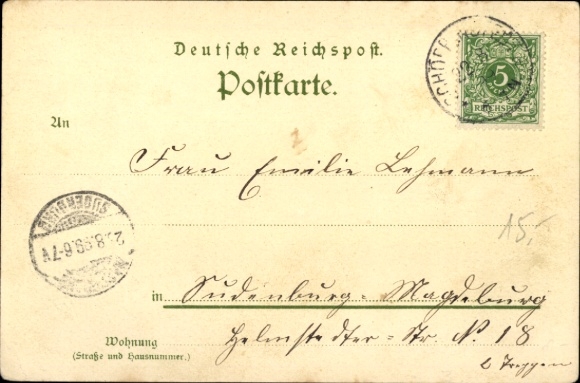 Deutsche Reichspost.
Postkarte.
5
REICHSPOST
An
Frau Emilie Lehmann
SUDENBURG
8.99.6-7V
15,-
in Sudenburg-Magdeburg
Wohnung
(Straße und Hausnummer.)
Helmstedter-Str. No. 18
2 Treppen